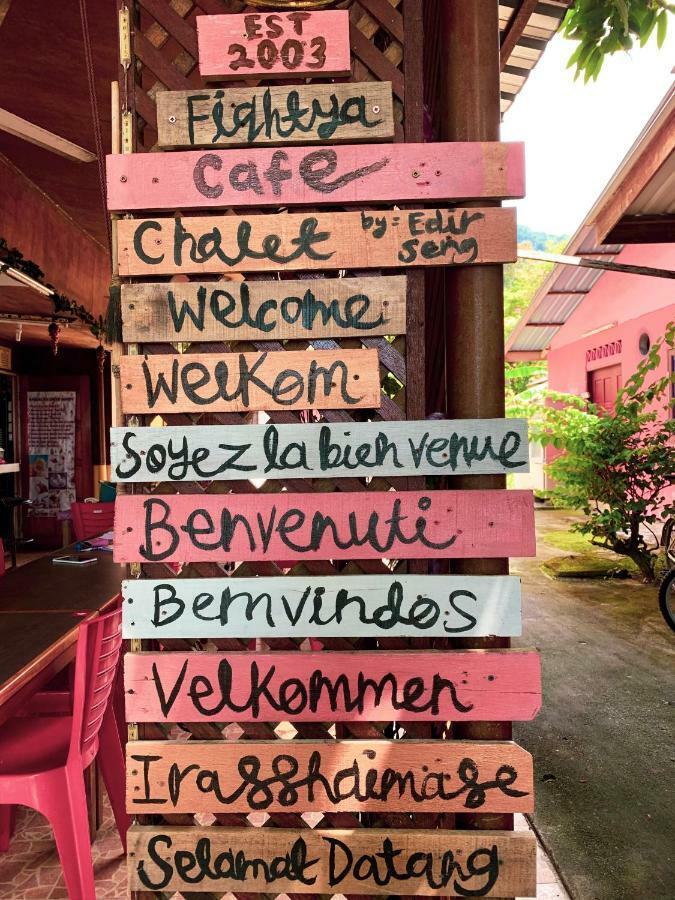 EST
2003
Fightya
Cafe
Chalet by: Edir
Seng
Welcome
Welkom
Soyez la bien venue
Benvenuti
Bemvindos
Velkommen
Irasshaimase
Selamat Datang